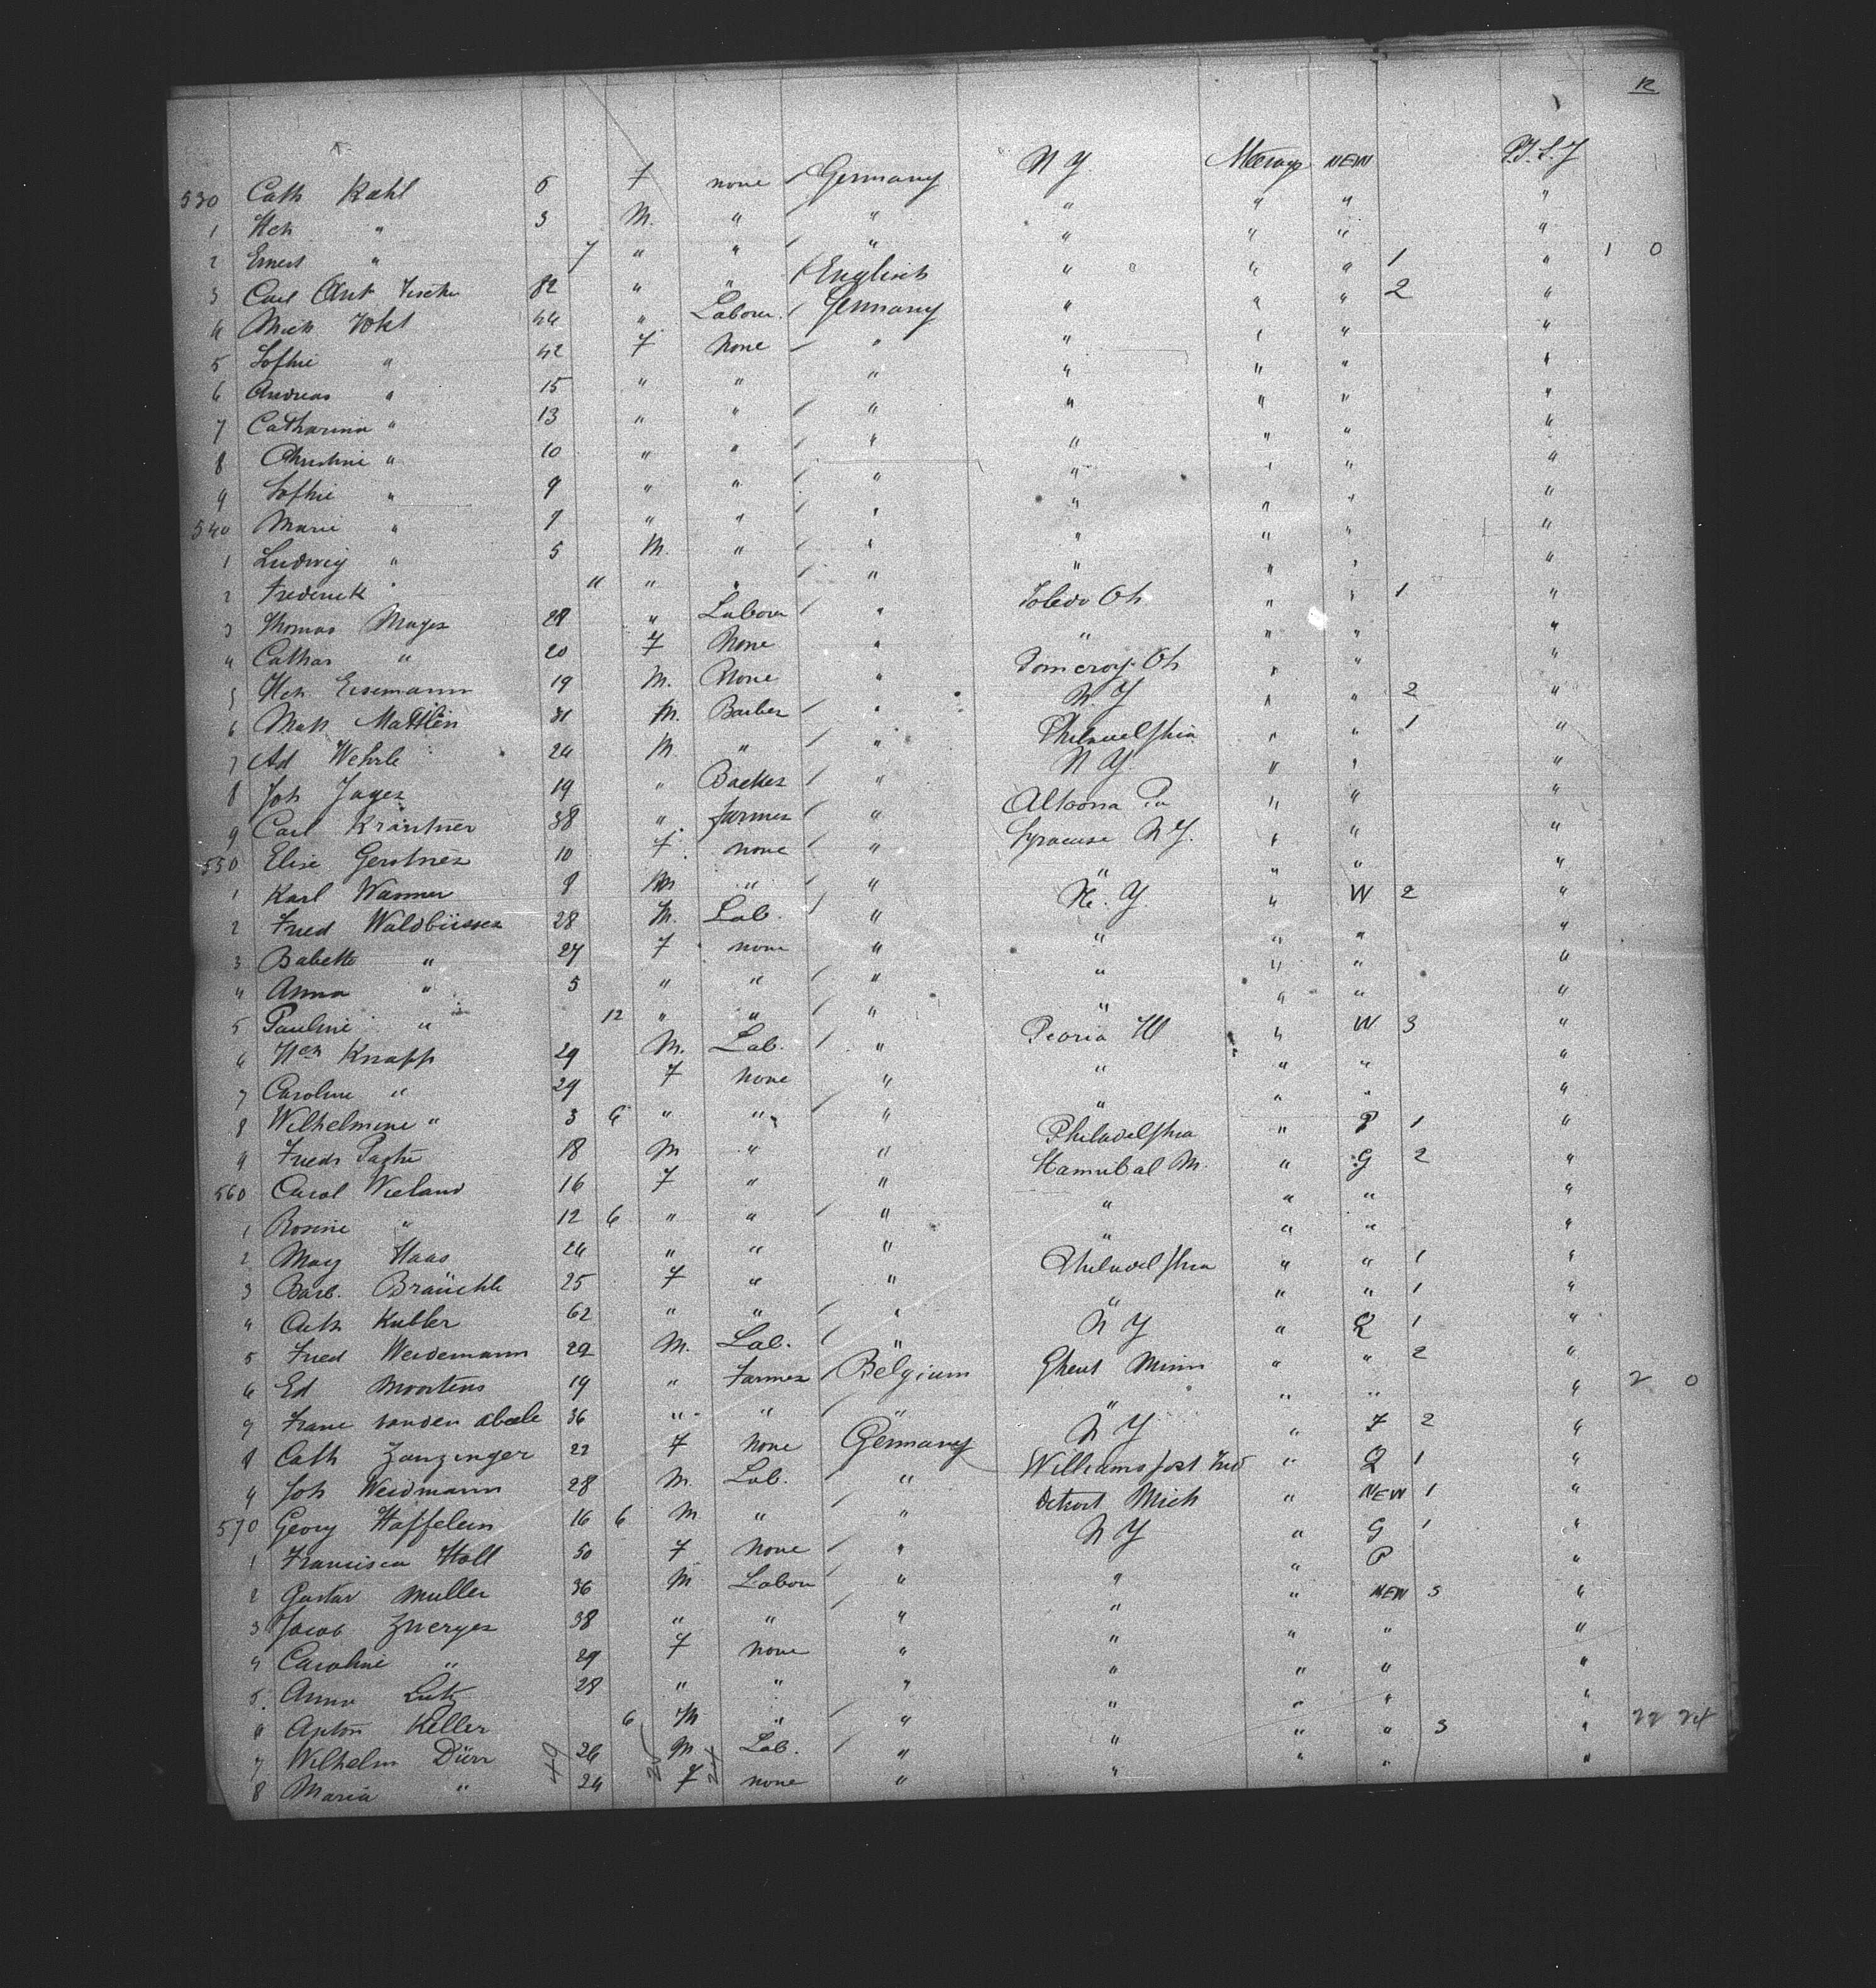 12
530 Cath Kahl 6 f none Germany N Y. Steerage NEW P.T.S.Y
1 Hch " 3 M. " " " " " "
2 Ernest " 7 " " " " " " "
3 Carl Ant 82 " " English " " " 1 " 1 0
4 Mich Vokt 44 " Labour. Germany " " " 2 "
5 Sofhie " 42 F None " " " " "
6 Andreas " 15 " " " " " " "
7 Catharina " 13 " " " " " " "
8 Christine " 10 " " " " " " "
9 Sofhie " 9 " " " " " " "
540 Marie " 9 " " " " " " "
1 Ludwig " 5 M. " " " " " "
2 Frederick " 11 " " " " " " "
3 Thomas Mayer 28 " Labour " Toledo Oh " " 1 "
4 Cathar " 20 F None " " " " "
5 Hch Eisemann 19 M. None " Pomeroy Oh " " "
6 Math Mattlin 31 M. Barber " N. Y " " 2 "
7 Ad Wehrle 24 M " " Philadelfhia " " 1 "
8 Joh Jager 19 " Backer " N Y. " " "
9 Carl Kräutner 38 " farmer " Altoona Pa " " "
550 Elise Gerstner 10 F. none " Syracuse N Y. " " "
1 Karl Wanner 9 M " " " " " "
2 Fred Waldbüsser 28 M. Lab. " N. Y. " W 2 "
3 Babette " 27 F none " " " " "
4 Anna " 5 " " " " " " "
5 Pauline " 12 " " " " " " "
6 Hch Knapp 29 M. Lab. " Peoria Ill " W 3 "
7 Caroline " 29 F none " " " " "
8 Wilhelmine " 3 6 " " " " " " "
9 Friedr 18 M " " Philadelfhia " P 1 "
560 Carol Wieland 16 F " " Hannibal M. " G 2 "
1 Rosine " 12 6 " " " " " " "
2 May Haas 24 " " " " " " "
3 Barb. Bräuchle 25 F " " Philadelfhia " " 1 "
4 Cath Kubler 62 " " " " " " 1 "
5 Fred Weidemann 22 M. Lab. " N Y " Q 1 "
6 Ed Moortens 19 " Farmer Belgium Ghent Minn " " 2 " 2 0
7 Franc vanden abeele 36 " " " " " " "
8 Cath Zanzinger 22 F None Germany N Y " F 2 "
9 Joh Weidmann 28 M. Lab. " Williamsport Ind " Q 1 "
570 Georg Haffelein 16 6 M. " " Detroit Mich " NEW 1 "
1 Francisca Holl 50 F None " N Y " G 1 "
2 Gustav Muller 36 M Labour " " " P "
3 Jacob Zwerger 38 " " " " " NEW 3 "
4 Caroline " 29 F none " " " " "
5. Anna Lutz 28 " " " " " " "
6 Anton Keller 6 M " " " " " "
7 Wilhelm Dürr 26 M. Lab. " " " " 3 " 22 24
8 Maria " 24 F none " " " " "
49 25 24